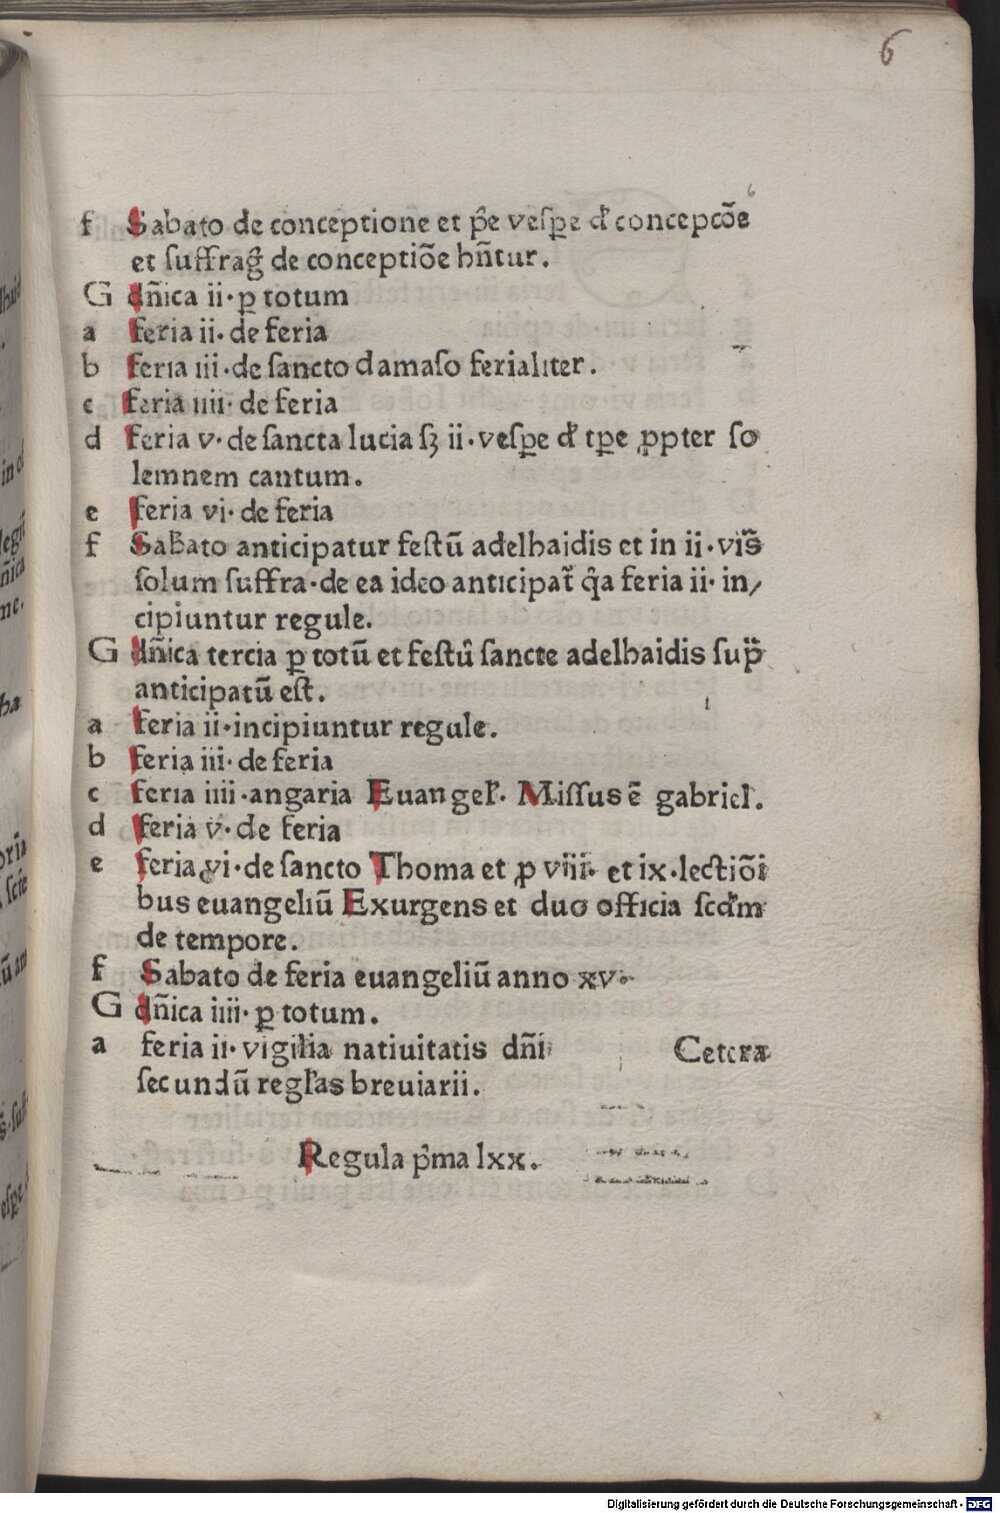 6
6
f Sabato de conceptione et p̄e vesꝑe d̄ concepcōe
et suffrag̃ de conceptiōe hn̄tur.
G dn̄ica ii·ꝑ totum
a feria ii·de feria
b feria iii·de sancto damaso ferialiter.
c feria iiii·de feria
d feria v·de sancta lucia sꝫ ii·vesꝑe d̄ tꝑe ꝓpter so
lemnem cantum.
e feria vi·de feria
f Sabbato anticipatur festū adelhaidis et in ii·vi\u0303s
solum suffra·de ea ideo anticipat̃ q̃a feria ii·in/
cipiuntur regule.
G dn̄ica tercia ꝑ totū et festū sancte adelhaidis sup̃
anticipatū est.
a feria ii·incipiuntur regule.
b feria iii·de feria
c feria iiii·angaria Euangel̃· Missus ē gabriel.
d feria v·de feria
e feria vi·de sancto Thoma et ꝓ viii·et ix·lectiōi
bus euangeliū Exurgens et duo officia scd̄m
de tempore.
f Sabato de feria euangeliū anno xv·
G dn̄ica iiii·ꝑ totum.
a feria ii·vigilia natiuitatis dn̄i Cetera
secundū regl̃as breuiarii.
Regula p̄ma lxx.
Digitalisierung gefördert durch die Deutsche Forschungsgemeinschaft - DFG